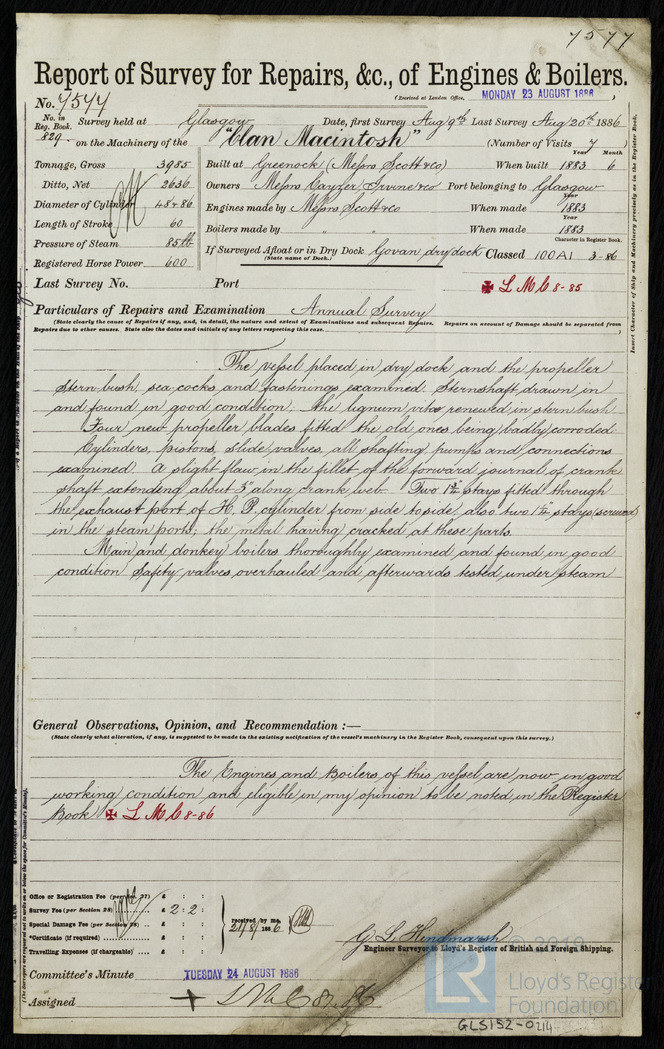 7577
Report of Survey for Repairs, &c., of Engines & Boilers.
(Received at London Office, MONDAY 23 AUGUST 1886
No. 7544
No. in Reg. Book. 829 Survey held at Glasgow Date, first Survey Aug 9th Last Survey Aug 20th 1886
on the Machinery of the "Clan Macintosh" (Number of Visits 7)
Tonnage, Gross 3985
Ditto, Net 2636
Diameter of Cylinder 48 & 86
Length of Stroke 60
Pressure of Steam 85 lb
Registered Horse Power 600
Year Month
Built at Greenock (Messrs Scott & Co) When built 1883 6
Owners Messrs Cayzer Irvine & Co Port belonging to Glasgow
Year
Engines made by Messrs Scott & Co When made 1883
Year
Boilers made by " " When made 1883
Character in Register Book.
If Surveyed Afloat or in Dry Dock Govan dry dock Classed 100A1 3-86
(State name of Dock.)
Last Survey No. Port
L M C 8-85
Particulars of Repairs and Examination Annual Survey
(State clearly the cause of Repairs if any, and, in detail, the nature and extent of Examinations and subsequent Repairs. Repairs on account of Damage should be separated from
Repairs due to other causes. State also the dates and initials of any letters respecting this case.
The vessel placed in dry dock and the propeller
stern-bush, sea-cocks and fastenings examined. Sternshaft drawn in
and found in good condition. The lignum vitae renewed in stern bush.
Four new propeller blades fitted the old ones being badly corroded.
Cylinders, pistons, slide valves, all shafting pumps and connections
examined. A slight flaw in the fillet of the forward journal of crank
shaft extending about 3" along crank web. Two 1½" stays fitted through
the exhaust port of H. P. cylinder from side to side, also two 1½ stays screwed
in the steam ports, the metal having cracked at these parts.
Main and donkey boilers thoroughly examined and found in good
condition Safety valves overhauled and afterwards tested under steam
General Observations, Opinion, and Recommendation :—
(State clearly what alteration, if any, is suggested to be made in the existing notification of the vessel's machinery in the Register Book, consequent upon this survey.)
The Engines and Boilers of this vessel are now in good
working condition and eligible in my opinion to be noted in the Register
Book L M C 8-86
Office or Registration Fee (per Sec. 27) £ : :
Survey Fee (per Section 28) £ 2 : 2 :
Special Damage Fee (per Section 28) £ : :
*Certificate (if required) £ : :
Travelling Expenses (if chargeable) £ : :
received by me,
21/8/1886
G L Hindmarsh
Engineer Surveyor to Lloyd's Register of British and Foreign Shipping.
Committee's Minute TUESDAY 24 AUGUST 1886
Assigned + L M C 8.86
LR
Lloyd's Register
Foundation
GLS152-0214
Insert Character of Ship and Machinery precisely as in the Register Book.
(The Surveyors are requested not to write on or below the space for Committee's Minute.)